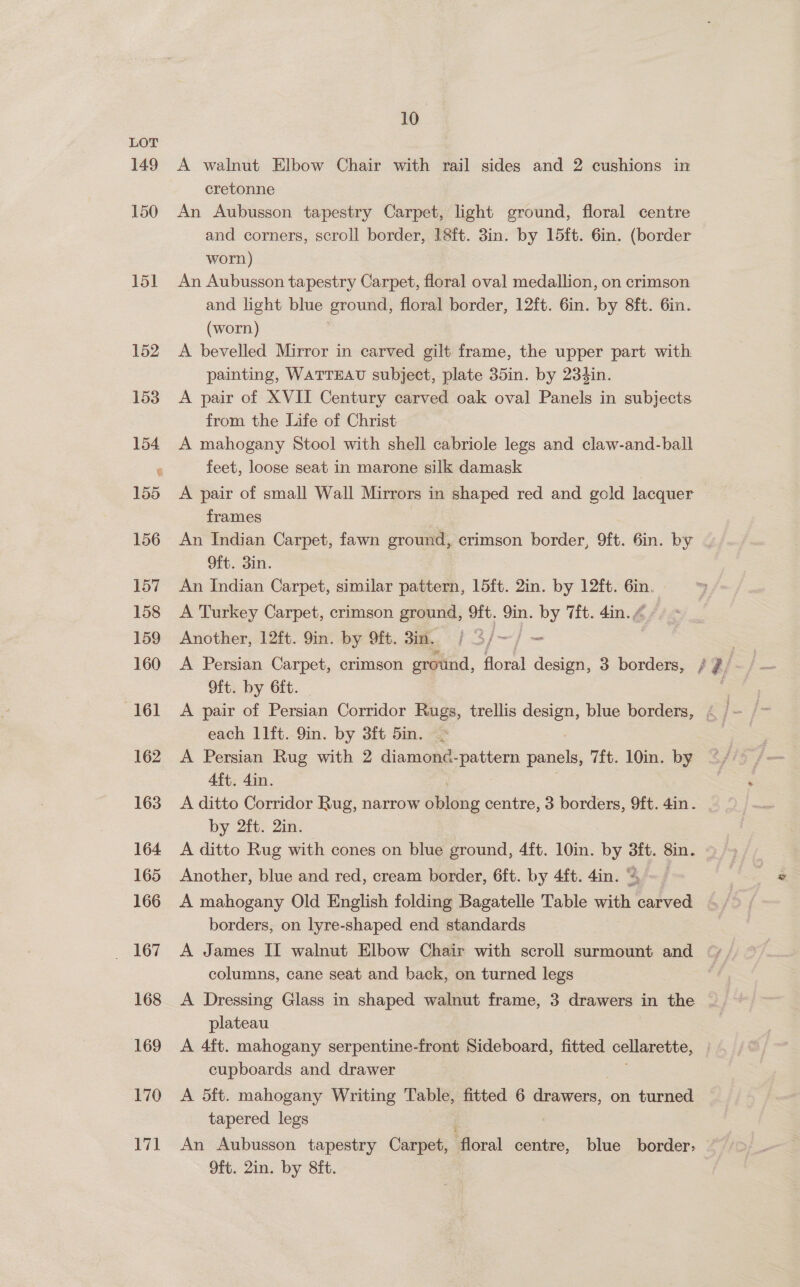 10
LOT
149 A walnut Elbow Chair with rail sides and 2 cushions in
cretonne
150 An Aubusson tapestry Carpet, light ground, floral centre
and corners, scroll border, 18ft. 3in. by 15ft. 6in. (border
worn)
151 An Aubusson tapestry Carpet, floral oval medallion, on crimson
and light blue ground, floral border, 12ft. 6in. by 8ft. 6in.
(worn)
152 A bevelled Mirror in carved gilt frame, the upper part with
painting, WATTEAU subject, plate 35in. by 23½in.
153 A pair of XVII Century carved oak oval Panels in subjects
from the Life of Christ
154 A mahogany Stool with shell cabriole legs and claw-and-ball
feet, loose seat in marone silk damask
155 A pair of small Wall Mirrors in shaped red and gold lacquer
frames
156 An Indian Carpet, fawn ground, crimson border, 9ft. 6in. by
9ft. 3in.
157 An Indian Carpet, similar pattern, 15ft. 2in. by 12ft. 6in.
158 A Turkey Carpet, crimson ground, 9ft. 9in. by 7ft. 4in.
159 Another, 12ft. 9in. by 9ft. 3in. 13/-/-
160 A Persian Carpet, crimson ground, floral design, 3 borders,
9ft. by 6ft.
161 A pair of Persian Corridor Rugs, trellis design, blue borders,
each 11ft. 9in. by 3ft 5in.
162 A Persian Rug with 2 diamond-pattern panels, 7ft. 10in. by
4ft. 4in.
163 A ditto Corridor Rug, narrow oblong centre, 3 borders, 9ft. 4in.
by 2ft. 2in.
164 A ditto Rug with cones on blue ground, 4ft. 10in. by 3ft. 8in.
165 Another, blue and red, cream border, 6ft. by 4ft. 4in.
166 A mahogany Old English folding Bagatelle Table with carved
borders, on lyre-shaped end standards
167 A James II walnut Elbow Chair with scroll surmount and
columns, cane seat and back, on turned legs
168 A Dressing Glass in shaped walnut frame, 3 drawers in the
plateau
169 A 4ft. mahogany serpentine-front Sideboard, fitted cellarette,
cupboards and drawer
170 A 5ft. mahogany Writing Table, fitted 6 drawers, on turned
tapered legs
171 An Aubusson tapestry Carpet, floral centre, blue border,
9ft. 2in. by 8ft.